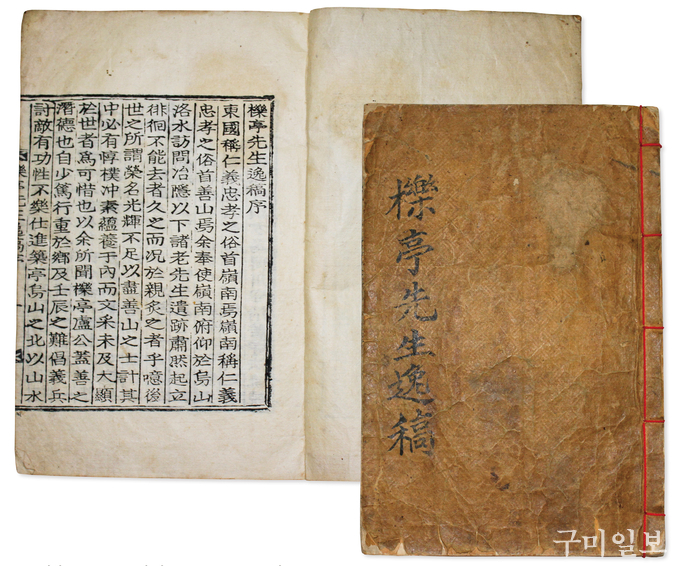 櫟亭先生逸稿序
東國稱仁義忠孝之俗首嶺南焉嶺南稱仁義
忠孝之俗首善山焉余奉使嶺南俯仰於烏山
洛水訪問冶應以下諸老先生遺跡肅然起立
徘徊不能去者久之而況於親炙之者乎噫後
世之所謂榮名光輝不足以盡善山之士計其
中必有惇樸冲素蘊養于內而文采未及大顯
於世者爲可惜也以余所聞櫟亭盧公蓋善之
潛德也自少篤行重於鄕及壬辰之難倡義兵
討敵有功性不樂仕進築亭烏山之北以山水
櫟亭先生逸稿
구미일보